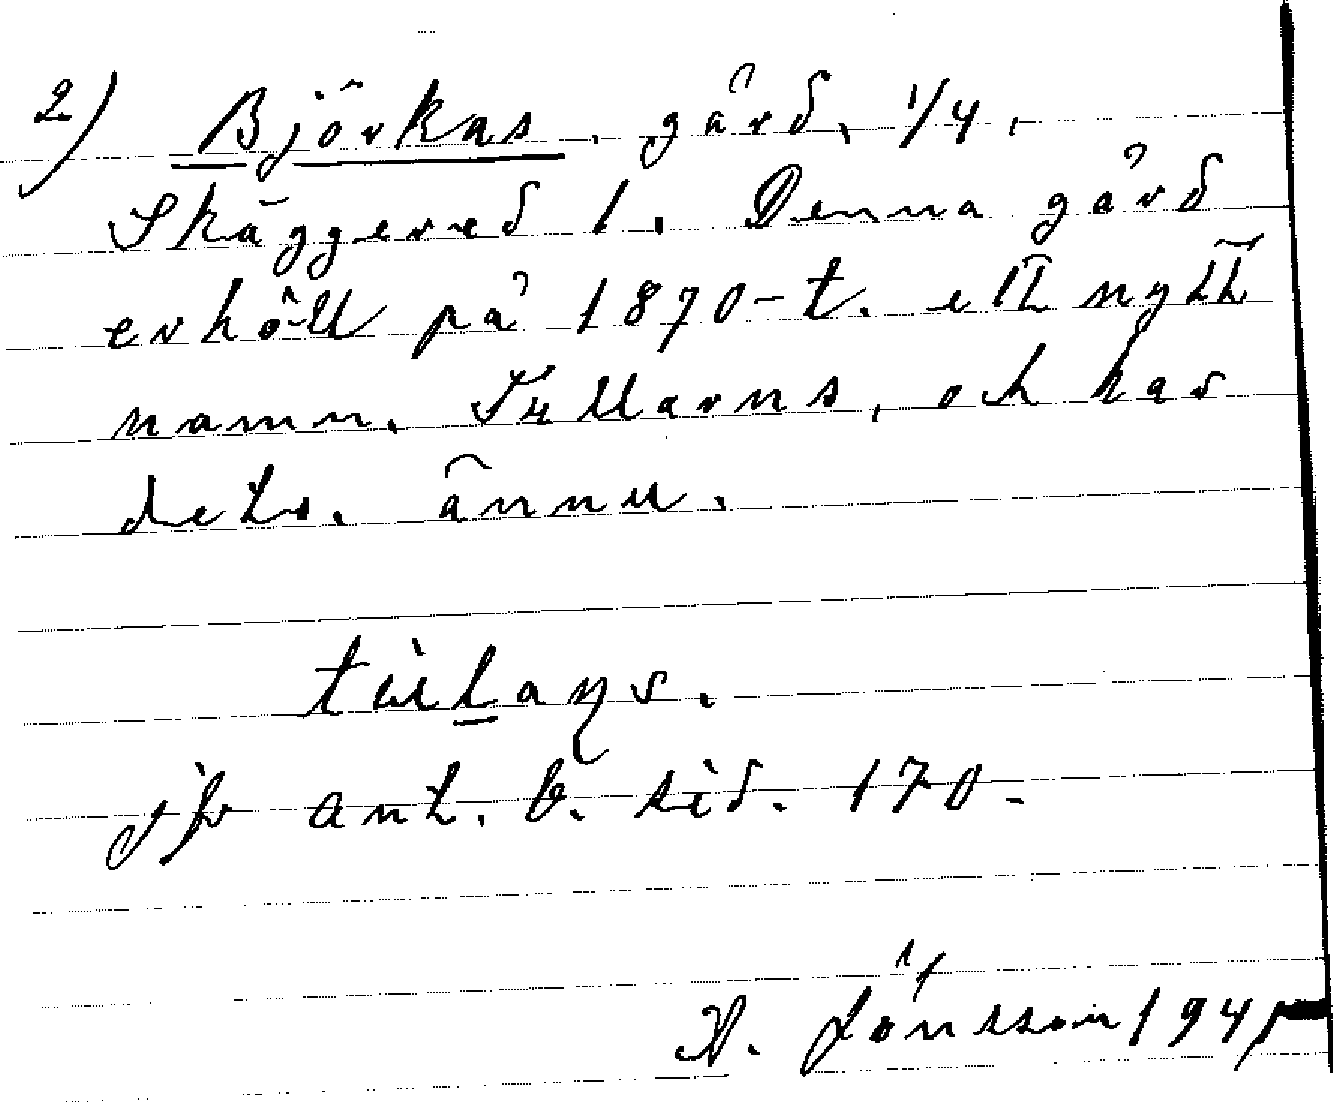 2) Björkas, gård, 1/4,
Skäggered 1. Denna gård
erhöll på 1870-t. ett nytt
namn. Tyllarns, och har
dets. ännu.
jfr ant. b. sid. 170.
Jönsson 1945